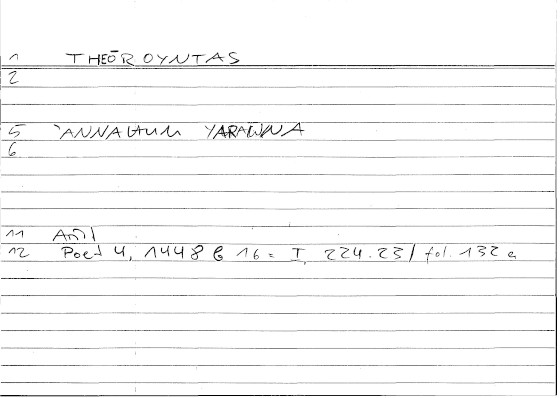 1 THEŌROYNTAS
2
5 'ANNAHUM YARAWNA
6
11 
12 Poet 4, 1448 b 16 = I, 224.23 / fol. 132 a